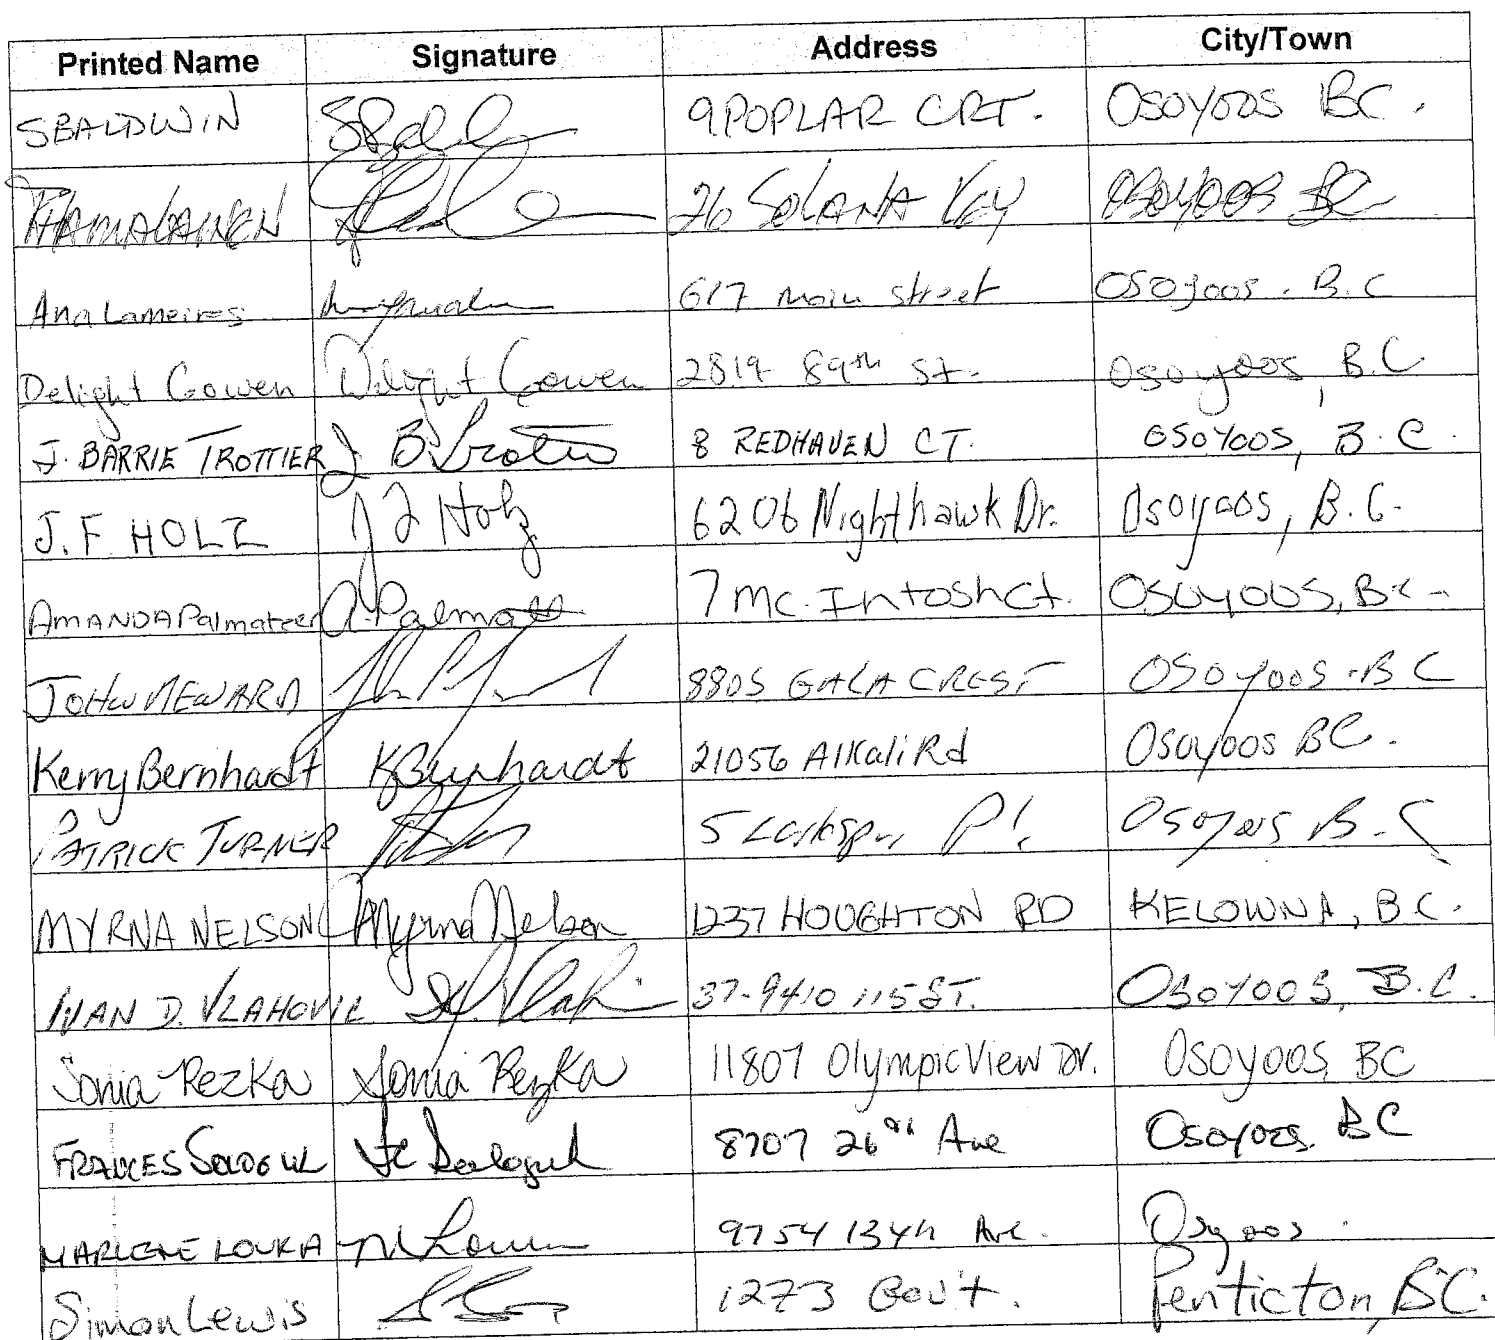 Printed Name Signature Address City/Town
SBALDWIN 9 POPLAR CRT. OSOYOOS BC.
HAMALAINEN 26 SOLANA KEY OSOYOOS BC
Ana Lameires 617 main street Osoyoos. B.C
Delight Gowen Delight Gowen 2819 89th St. Osoyoos, B.C
J. BARRIE TROTTIER J B Trottier 8 REDHAVEN CT. OSOYOOS, B.C.
J.F. HOLZ J F Holz 6206 Nighthawk Dr. Osoyoos, B.C.
AMANDA Palmateer A. Palmateer 7 Mc.Intosh Ct. OSOYOOS, BC.
JOHN NEWARD 8805 GALA CREST OSOYOOS. BC
Kerry Bernhardt K Bernhardt 21056 Alkali Rd Osoyoos BC.
PATRICK TURNER 5 Larkspur Pl. Osoyoos B.C
MYRNA NELSON Myrna Nelson 1237 HOUGHTON RD KELOWNA, B.C.
IVAN D. VLAHOVIC 37-9410 115 ST. OSOYOOS, B.C.
Sonia Rezka Sonia Rezka 11807 Olympic View Dr. Osoyoos, BC
FRANCES 8707 26th Ave Osoyoos, BC
MARLENE LOUKA 9754 134th Ave. Osoyoos.
Simon Lewis 1273 Gov't. Penticton, B.C.